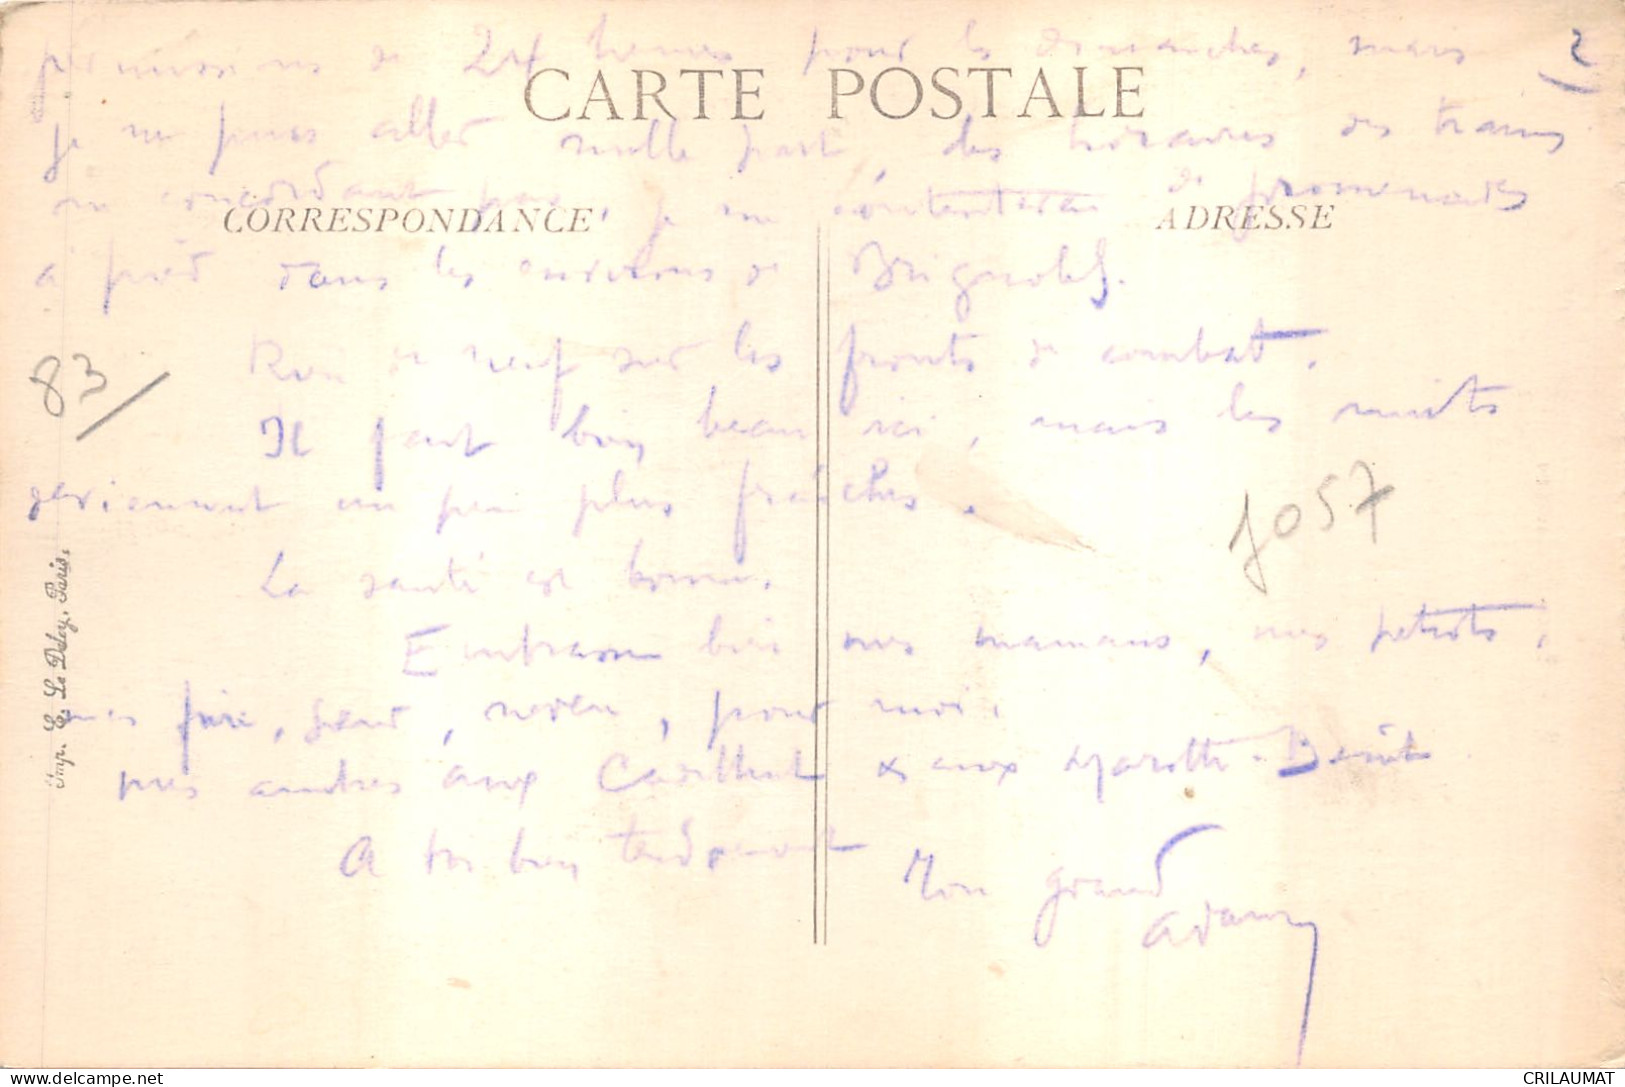 permissions de 24 heures pour les dimanches, mais 2
CARTE POSTALE
je ne puis aller nulle part, les horaires des trains
ne concordant pas, je me contenterai de promenades
CORRESPONDANCE ADRESSE
à pied dans les environs de Brignoles.
83/
Rien de neuf sur les fronts de combat.
Il fait bien beau ici, mais les nuits
deviennent un peu plus fraîches.
1057
La santé est bonne.
Embrasse bien nos mamans, nos petiots,
mes frère, sœur, neveu, pour moi.
aux & aux
A toi bien tendrement
Ton grand
Imp. E. Le Deley, Paris.
CRILAUMAT